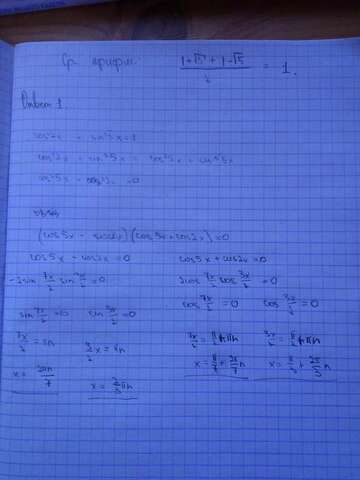 Ср. арифм. (1+√5 + 1-√5)/2 = 1.
Ответ 1.
cos²2x + sin²5x = 1
cos²2x + sin²5x = cos²5x + sin²5x
cos²5x - cos²2x = 0
(cos5x - cos2x)(cos5x + cos2x) = 0
cos5x - cos2x = 0
-2sin 7x/2 sin 3x/2 = 0
sin 7x/2 = 0 sin 3x/2 = 0
7x/2 = πn 3/2 x = πn
x = 2πn/7 x = 2/3 πn
cos5x + cos2x = 0
2cos 7x/2 cos 3x/2 = 0
cos 7x/2 = 0 cos 3x/2 = 0
7x/2 = π/2 + πn 3x/2 = π/2 + πn
x = π/7 + 2π/7 n x = π/3 + 2π/3 n